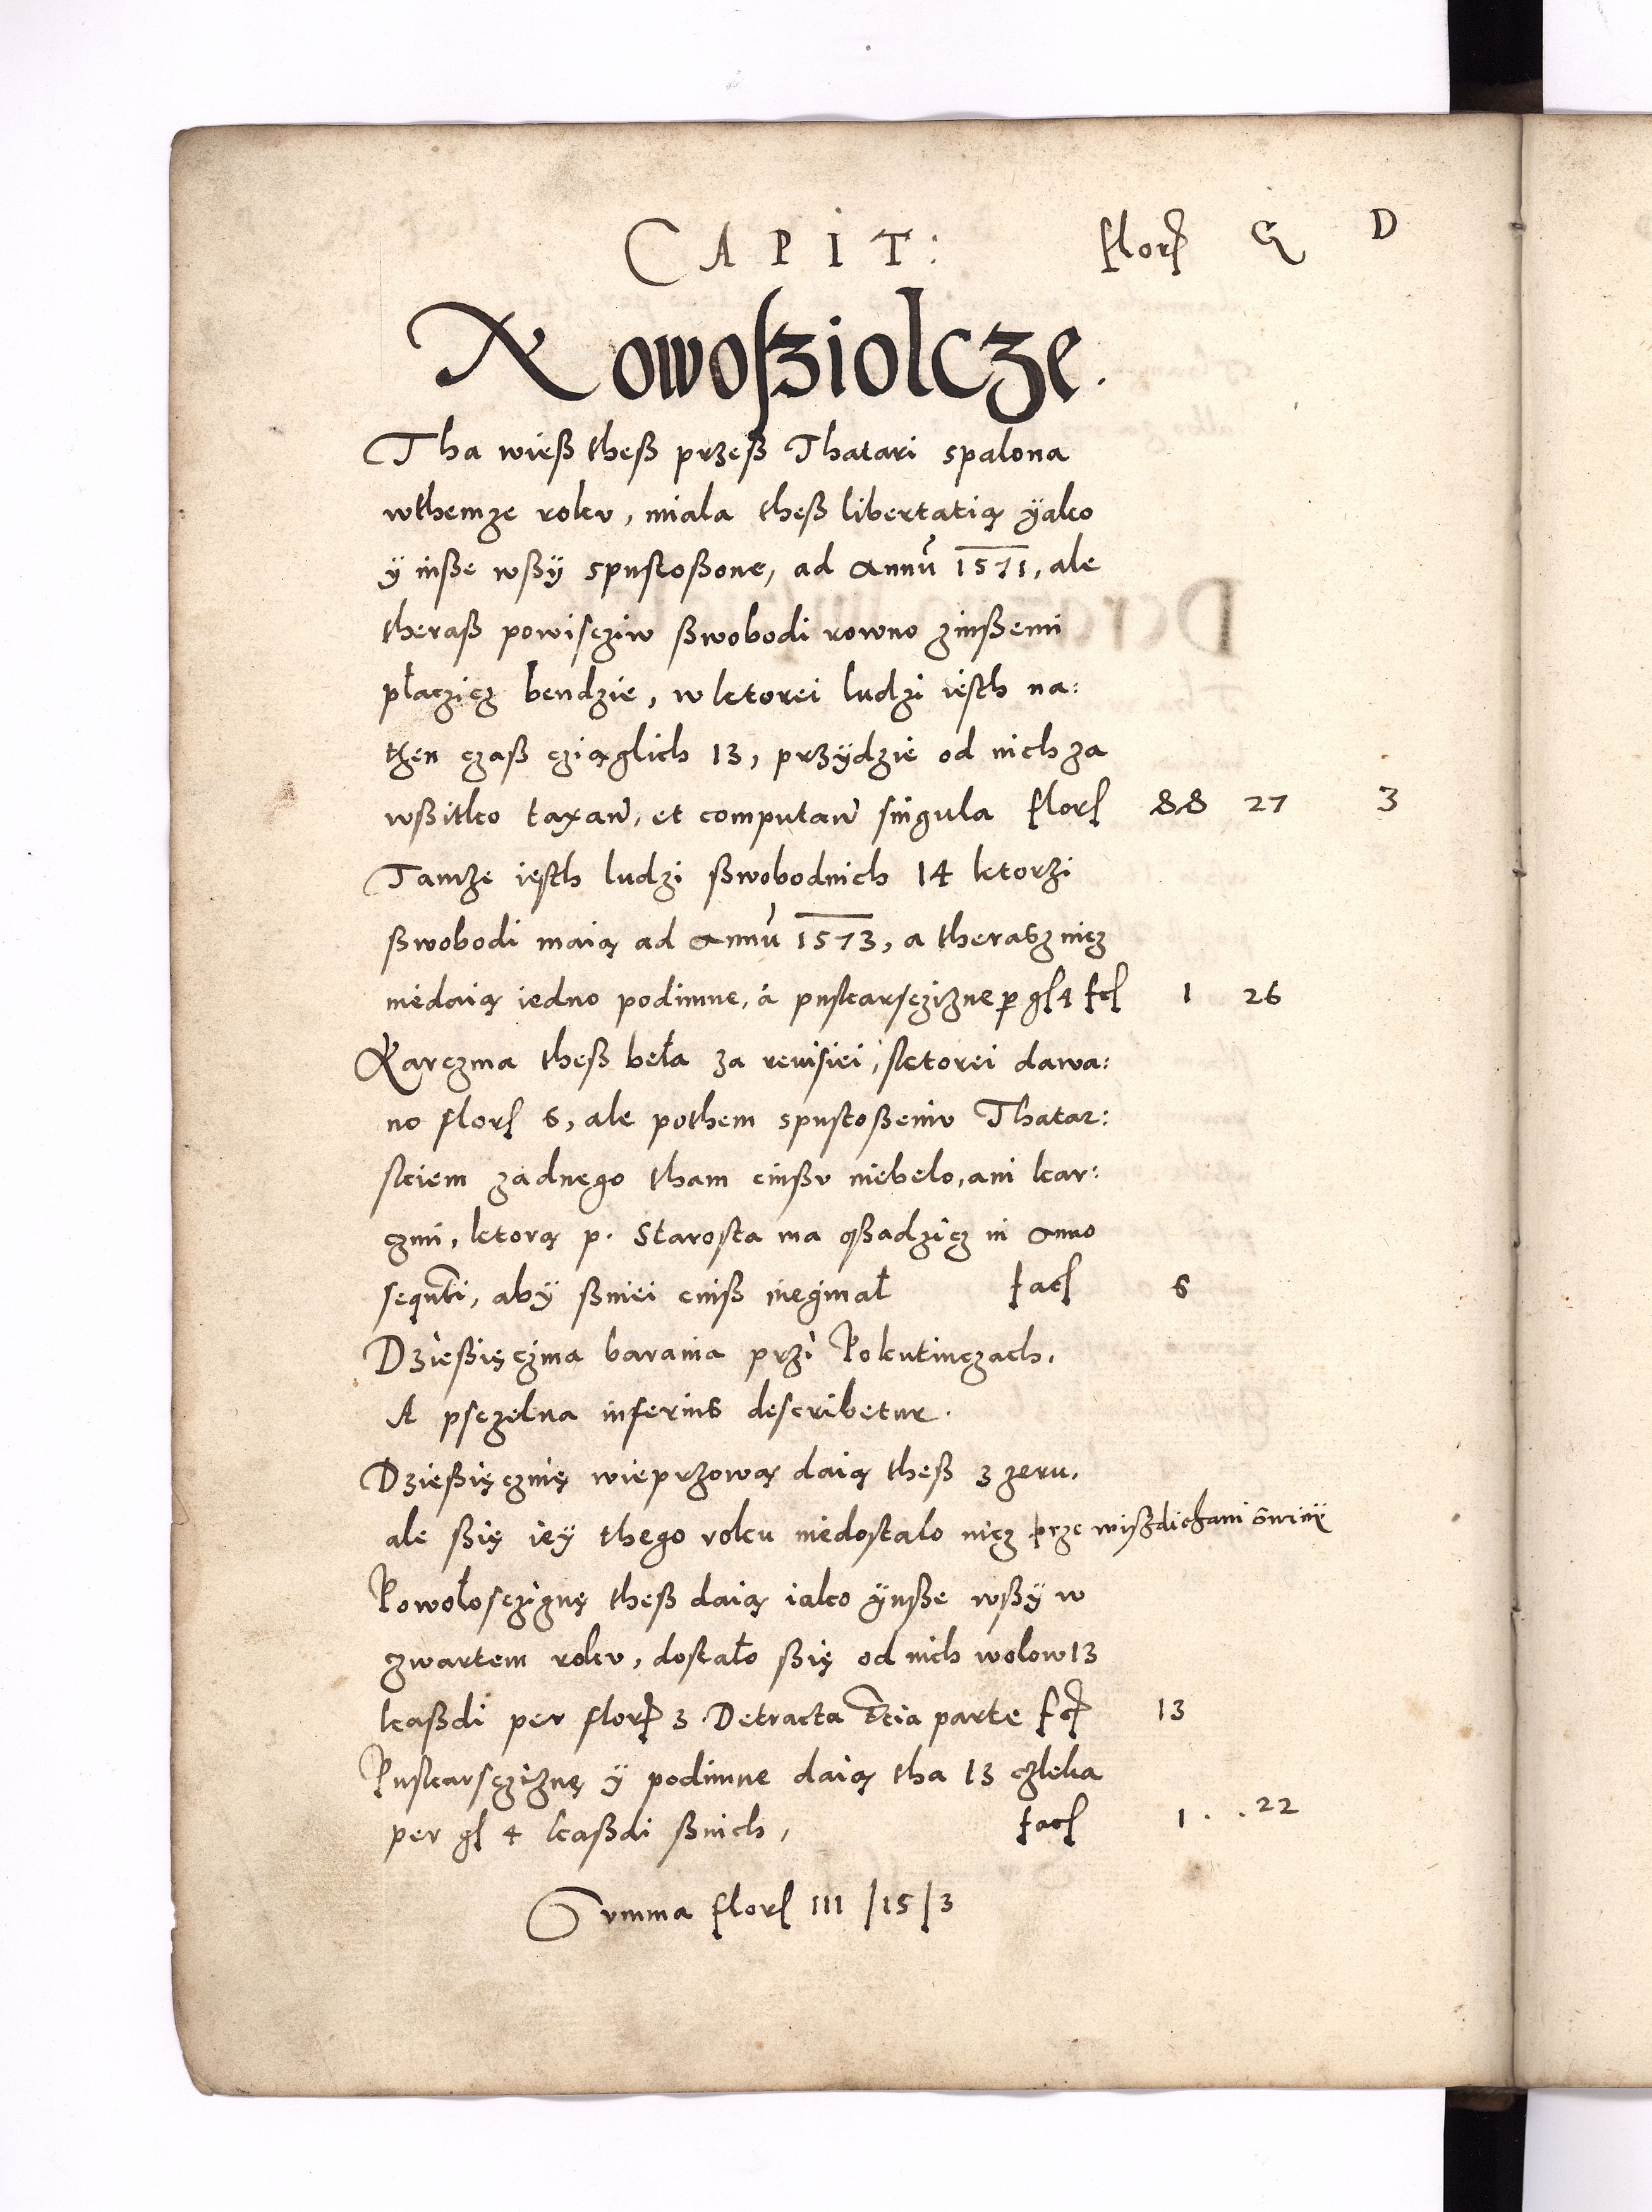 CAPIT: flor G D
Nowoßziolcze.
Tha wieß theß przeß Thatari spalona
wthemze rokv, miala theß libertatią ÿako
ÿ inße wßÿ spustoßone, ad Annū 1571, ale
theraß powiscziw ßwobodi rowno zinßemi
płaczicz bendzie, w ktorei ludzi iesth na:
then czaß cziąglich 13, przÿdzie od nich za
wßitko taxan, et computan singula flor 88 27 3
Tamze iesth ludzi ßwobodnich 14 ktorzi
ßwobodi maią ad Annū 1573, a therasz nicz
niedaią iedno podimne, á puskarsczizne p gl 4 fcl 1 26
Karczma theß beła za reuisiei, sktorei dawa:
no flor 6, ale pothem spustoßeniv Thatar:
skiem zadnego tham cinßv niebelo, ani kar:
czmi, ktorą p. Starosta ma oßadzicz in Anno
sequnti, aby ßniei cinß nieginał facl 6
Dzießięczina barania przi Pokutinczach.
A psczelna inferius describetur.
Dzießięczinę wieprzową daią theß z zeru.
ale ßię ieÿ thego roku niedostalo nicz prze wißdichani swinÿ
Powołosczignę theß daią iako ÿnße wßÿ w
czwartem rokv, dostało ßię od nich wolow 13
kaßdi per flor 3 Detracta tcia parte fcl 13
Puskarsczizne ÿ podimne daią tha 13 czleka
per gl 4 kaßdi ßnich, facl 1 . . 22
Svmma flor 111 | 15 | 3